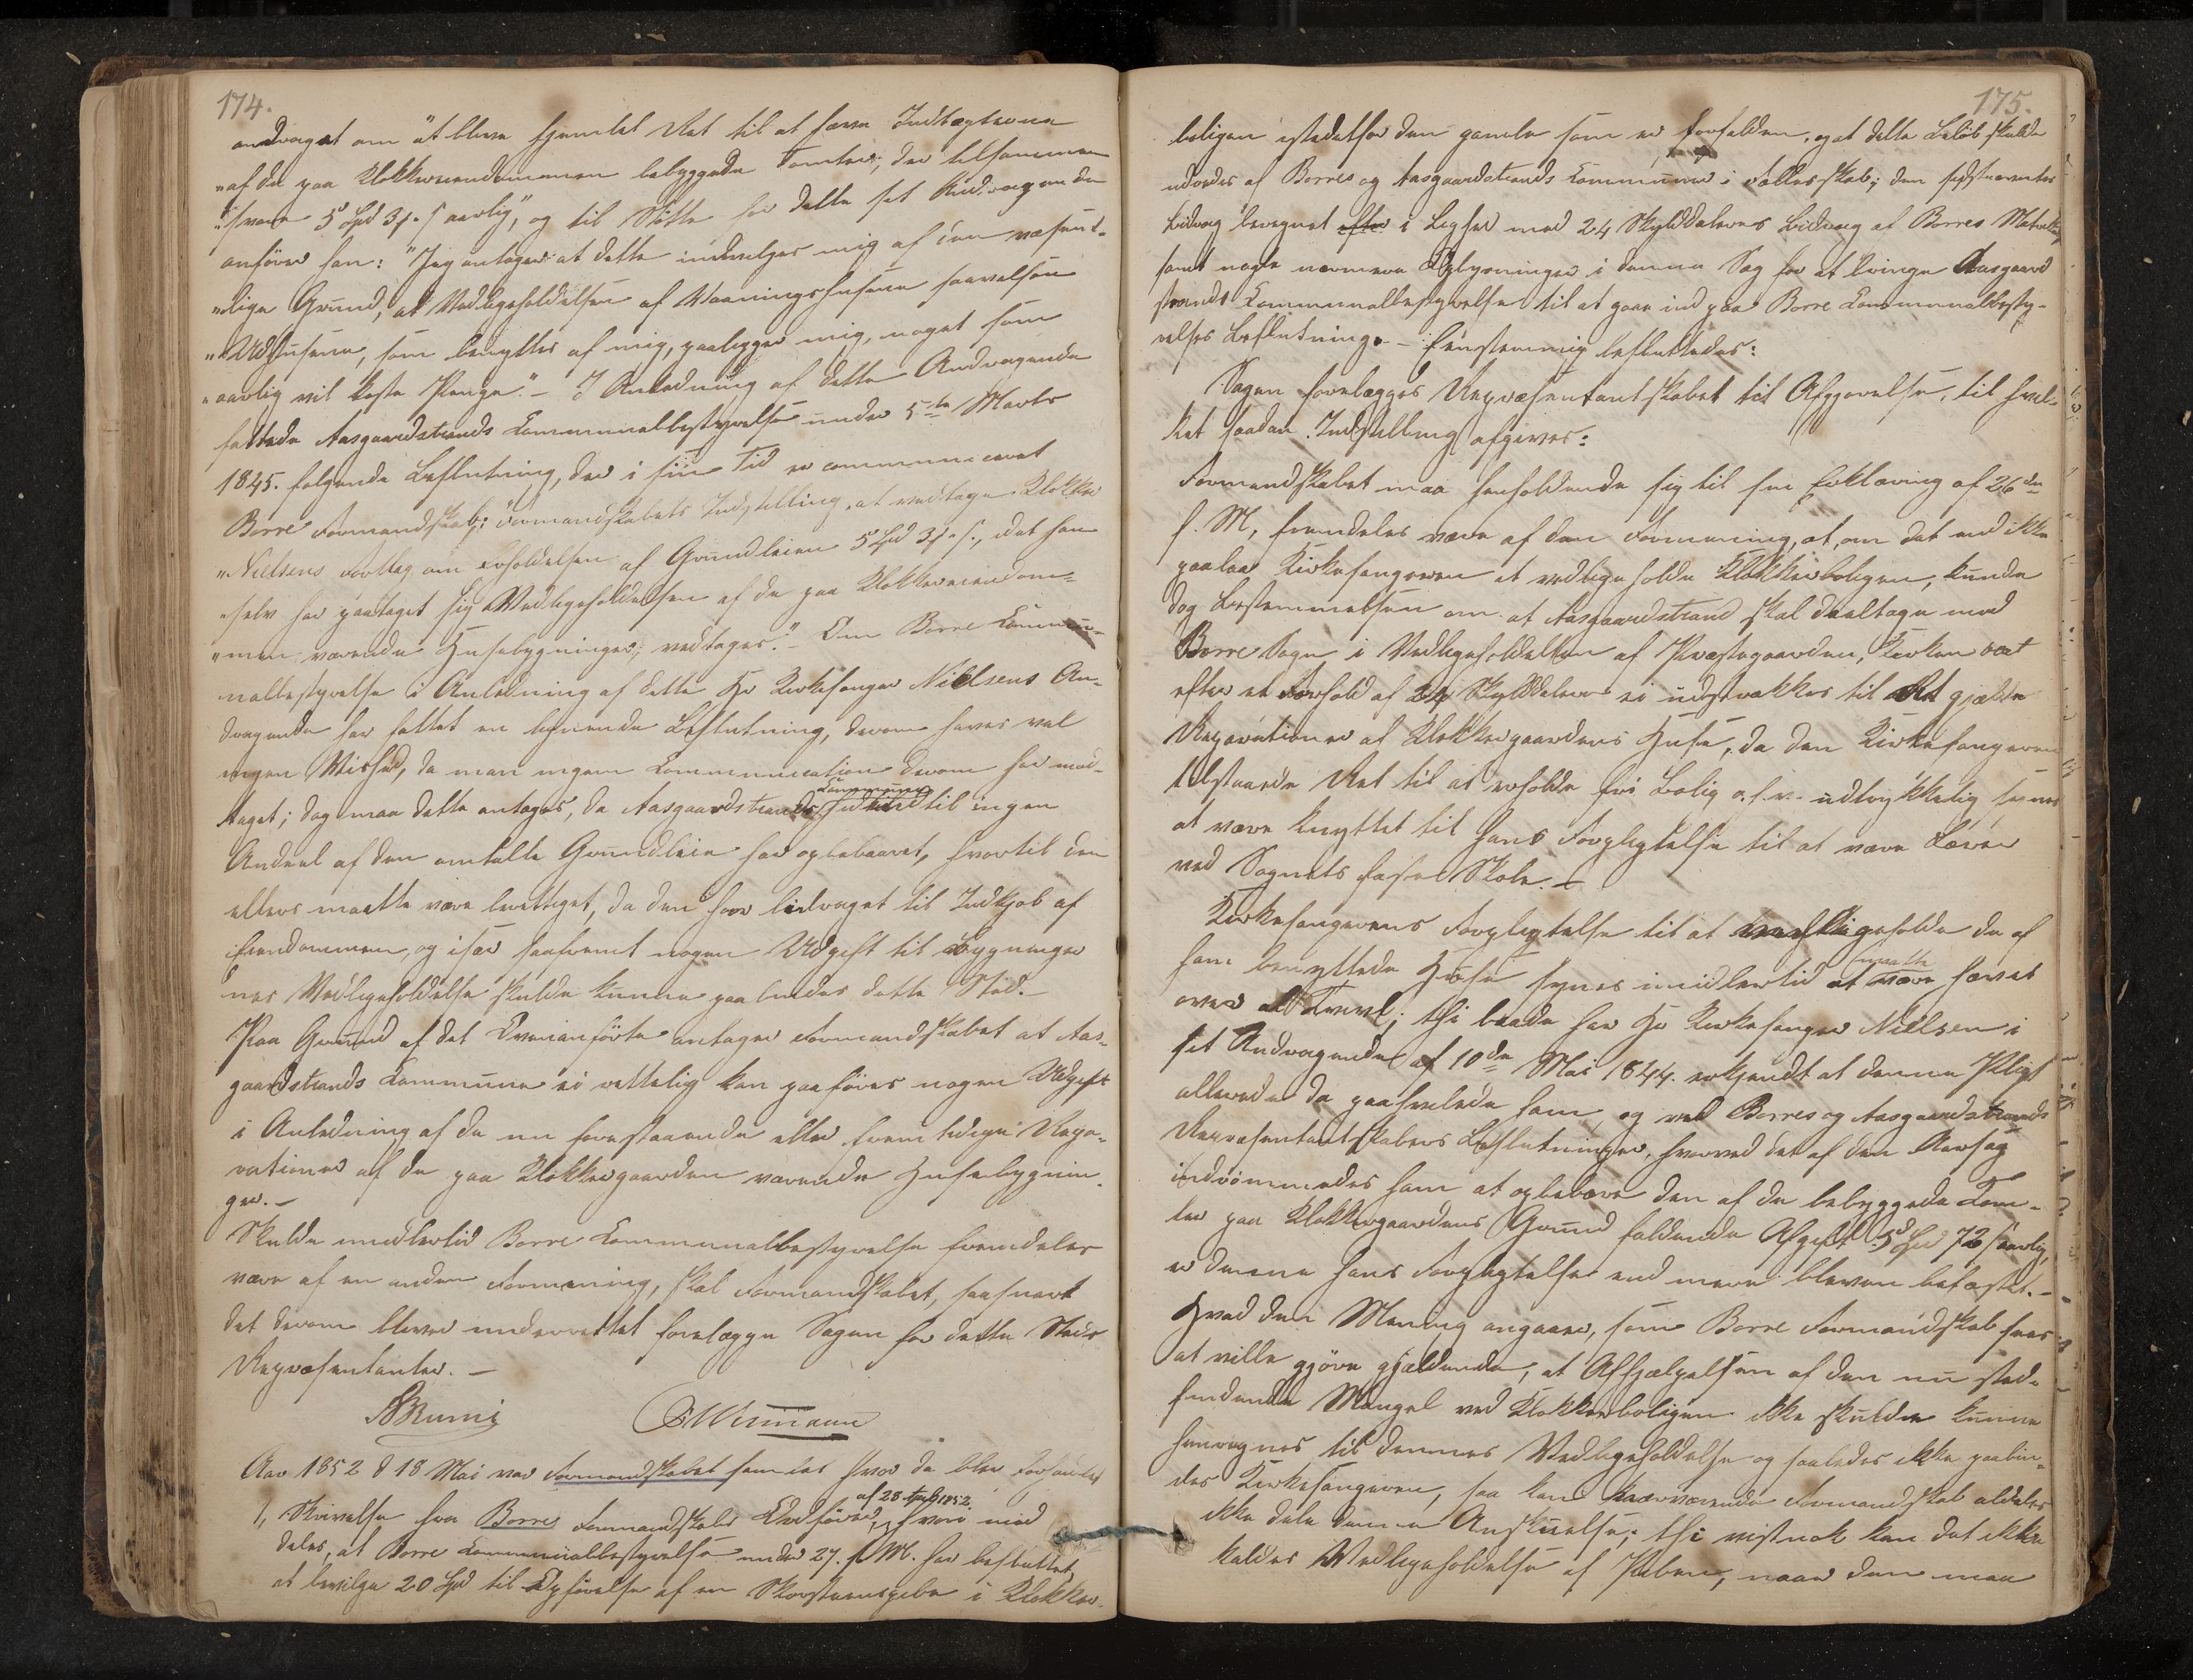 174.
andraget om "at blive hjemlet Ret til at hæve Indtægterne
"af de paa Klokkereiendommen bebyggede Tomter, der tilsammen
"svare 5 Spd 3 ß aarlig", og til Støtte for dette sit Andragende
anfører han: "Jeg antager at dette indvilges mig af den væsent-
"lige Grund, at Vedligeholdelsen af Vaaningshusene saavelsom
"Udhusene, som benyttes af mig, paalegges mig, noget som
"aarlig vil koste Penge." - I Anledning af dette Andragende
fattede Aasgaardstrands Communalbestyrelse under 5te Marts
1845. følgende Beslutning, der i sin Tid er communiceret
Borre Formandskab: "Formandskabets Indstilling, at vedtage Klokker
"Nielsens Forslag om erholdelsen af Grundleien 5 Spd 3 ß, idet han
"selv har paataget sig Vedligeholdelsen af de paa Klokkereiendom-
"men værende Husebygninger, vedtages." - Om Borre Commu-
nalbestyrelse i Anledning af dette Hr Kirkesanger Nielsens An-
dragende har fattet en lignende Beslutning, derom haves vel
ingen Vished, da man ingen Communication derom har mod-
taget; dog maa dette antages, da Aasgaardstrands Commune hidtil til ingen
Andeel af den omtalte Grundleie har oppebaaret, hvortil den
ellers maatte være berettiget, da den har bidraget til Indkjøb af
Eiendommen, og især saafremt nogen Udgift til Bygninger
nes Vedligeholdelse skulde kunne paabindes dette Sted.-
Paa Grund af det Ovenanførte antager Formandskabet at Aas-
gaardstrands Commune ei rettelig kan paaføres nogen Udgift
i Anledning af de nu forestaaende eller fremtidige Repa-
rationer af de paa Klokkergaarden værende Husebygnin-
ger.-
Skulde imidlertid Borre Communalbestyrelse fremdeles
være af en anden Formening, skal Formandskabet, saasnart
det derom bliver underrettet forelægge Sagen for dette Steds
Repræsentanter. -
Aar 1852 d 18 Mai var Formandskabet samlet hvor da blev Forhandlet
1, Skrivelse fra Borre Formandskabs Ordfører, af 28 April 1852. hvori med
deles, at Borre Communalbestyrelse under 27. f. M. har besluttet
at bevilge 20 Spd til Opførelse af en Skorsteenspibe i Klokker-
175.
boligen istedetfor den gamle som er forfalden, og at dette Beløb skulde
udredes af Borres og Aasgaardstrands Communer i Fællesskab; den sidstnævntes
Bidrag beregnet efter i Lighed med 24 Skylddalers Bidrag af Borres Matrikel
samt nogle nærmere Oplysninger i denne Sag for at tvinge Aasgaard
strands Communalbestyrelse til at gaae ind paa Borre Communalbesty-
relses Beslutning. - Eenstemmig besluttedes:
Sagen forelægges Repræsentantskabet til Afgjørelse, til hvil-
ket saadan Indstilling afgives:
Formandskabet maa henholdende sig til sin Erklæring af 26de
f. M, fremdeles være af den Formening, at, om det end ikke
paalaa Kirkesangeren at vedligeholde Klokkerboligen, kunde
dog Bestemmelsen om at Aasgaardstrand skal deeltage med
Borre Sogn i Vedligeholdelsen af Præstegaarden, Kirken &ct
efter et Forhold af 24 Skylddaler ei udstrækkes til at gjælde
Reparationer af Klokkergaardens Huse, da den Kirkesangeren
tilstaaede Ret til at erholde fri Bolig o.s.v. udtrykkelig synes
at være knyttet til hans Forpligtelse til at være Lærer
ved Sognets faste Skole. -
Kirkesangerens Forpligtelse til at vedligeholde de af
ham benyttede Huse synes imidlertid at maatte være hævet
over al Tvivl; thi baade har Hr Kirkesanger Nielsen i
sit Andragende af 10de Mai 1844. erkjendt at denne Pligt
allerede da paahvilede ham, og ved Borres og Aasgaardstrands
Repræsentantskabers Beslutninger, hvorved det af den Aarsag
indrømmedes ham at oppebære den af de bebyggede Tom-
ter paa Klokkergaardens Grund faldende Afgift 5 Spd 72 ß aarlig,
er denne hans Forpligtelse end mere bleven befæstet. -
Hvad den Mening angaaer, som Borre Formandskab sees
at ville gjøre gjældende, at Afhjælpelsen af den nu sted-
findende Mangel ved Klokkerboligen ikke skulde kunne
henregnes til dennes Vedligeholdelse og saaledes ikke paabin-
des Kirkesangeren, saa kan hærværende Formandskab aldeles
ikke dele denne Anskuelse; thi vistnok kan det ikke
kaldes Vedligeholdelse af Piben, naar den maa